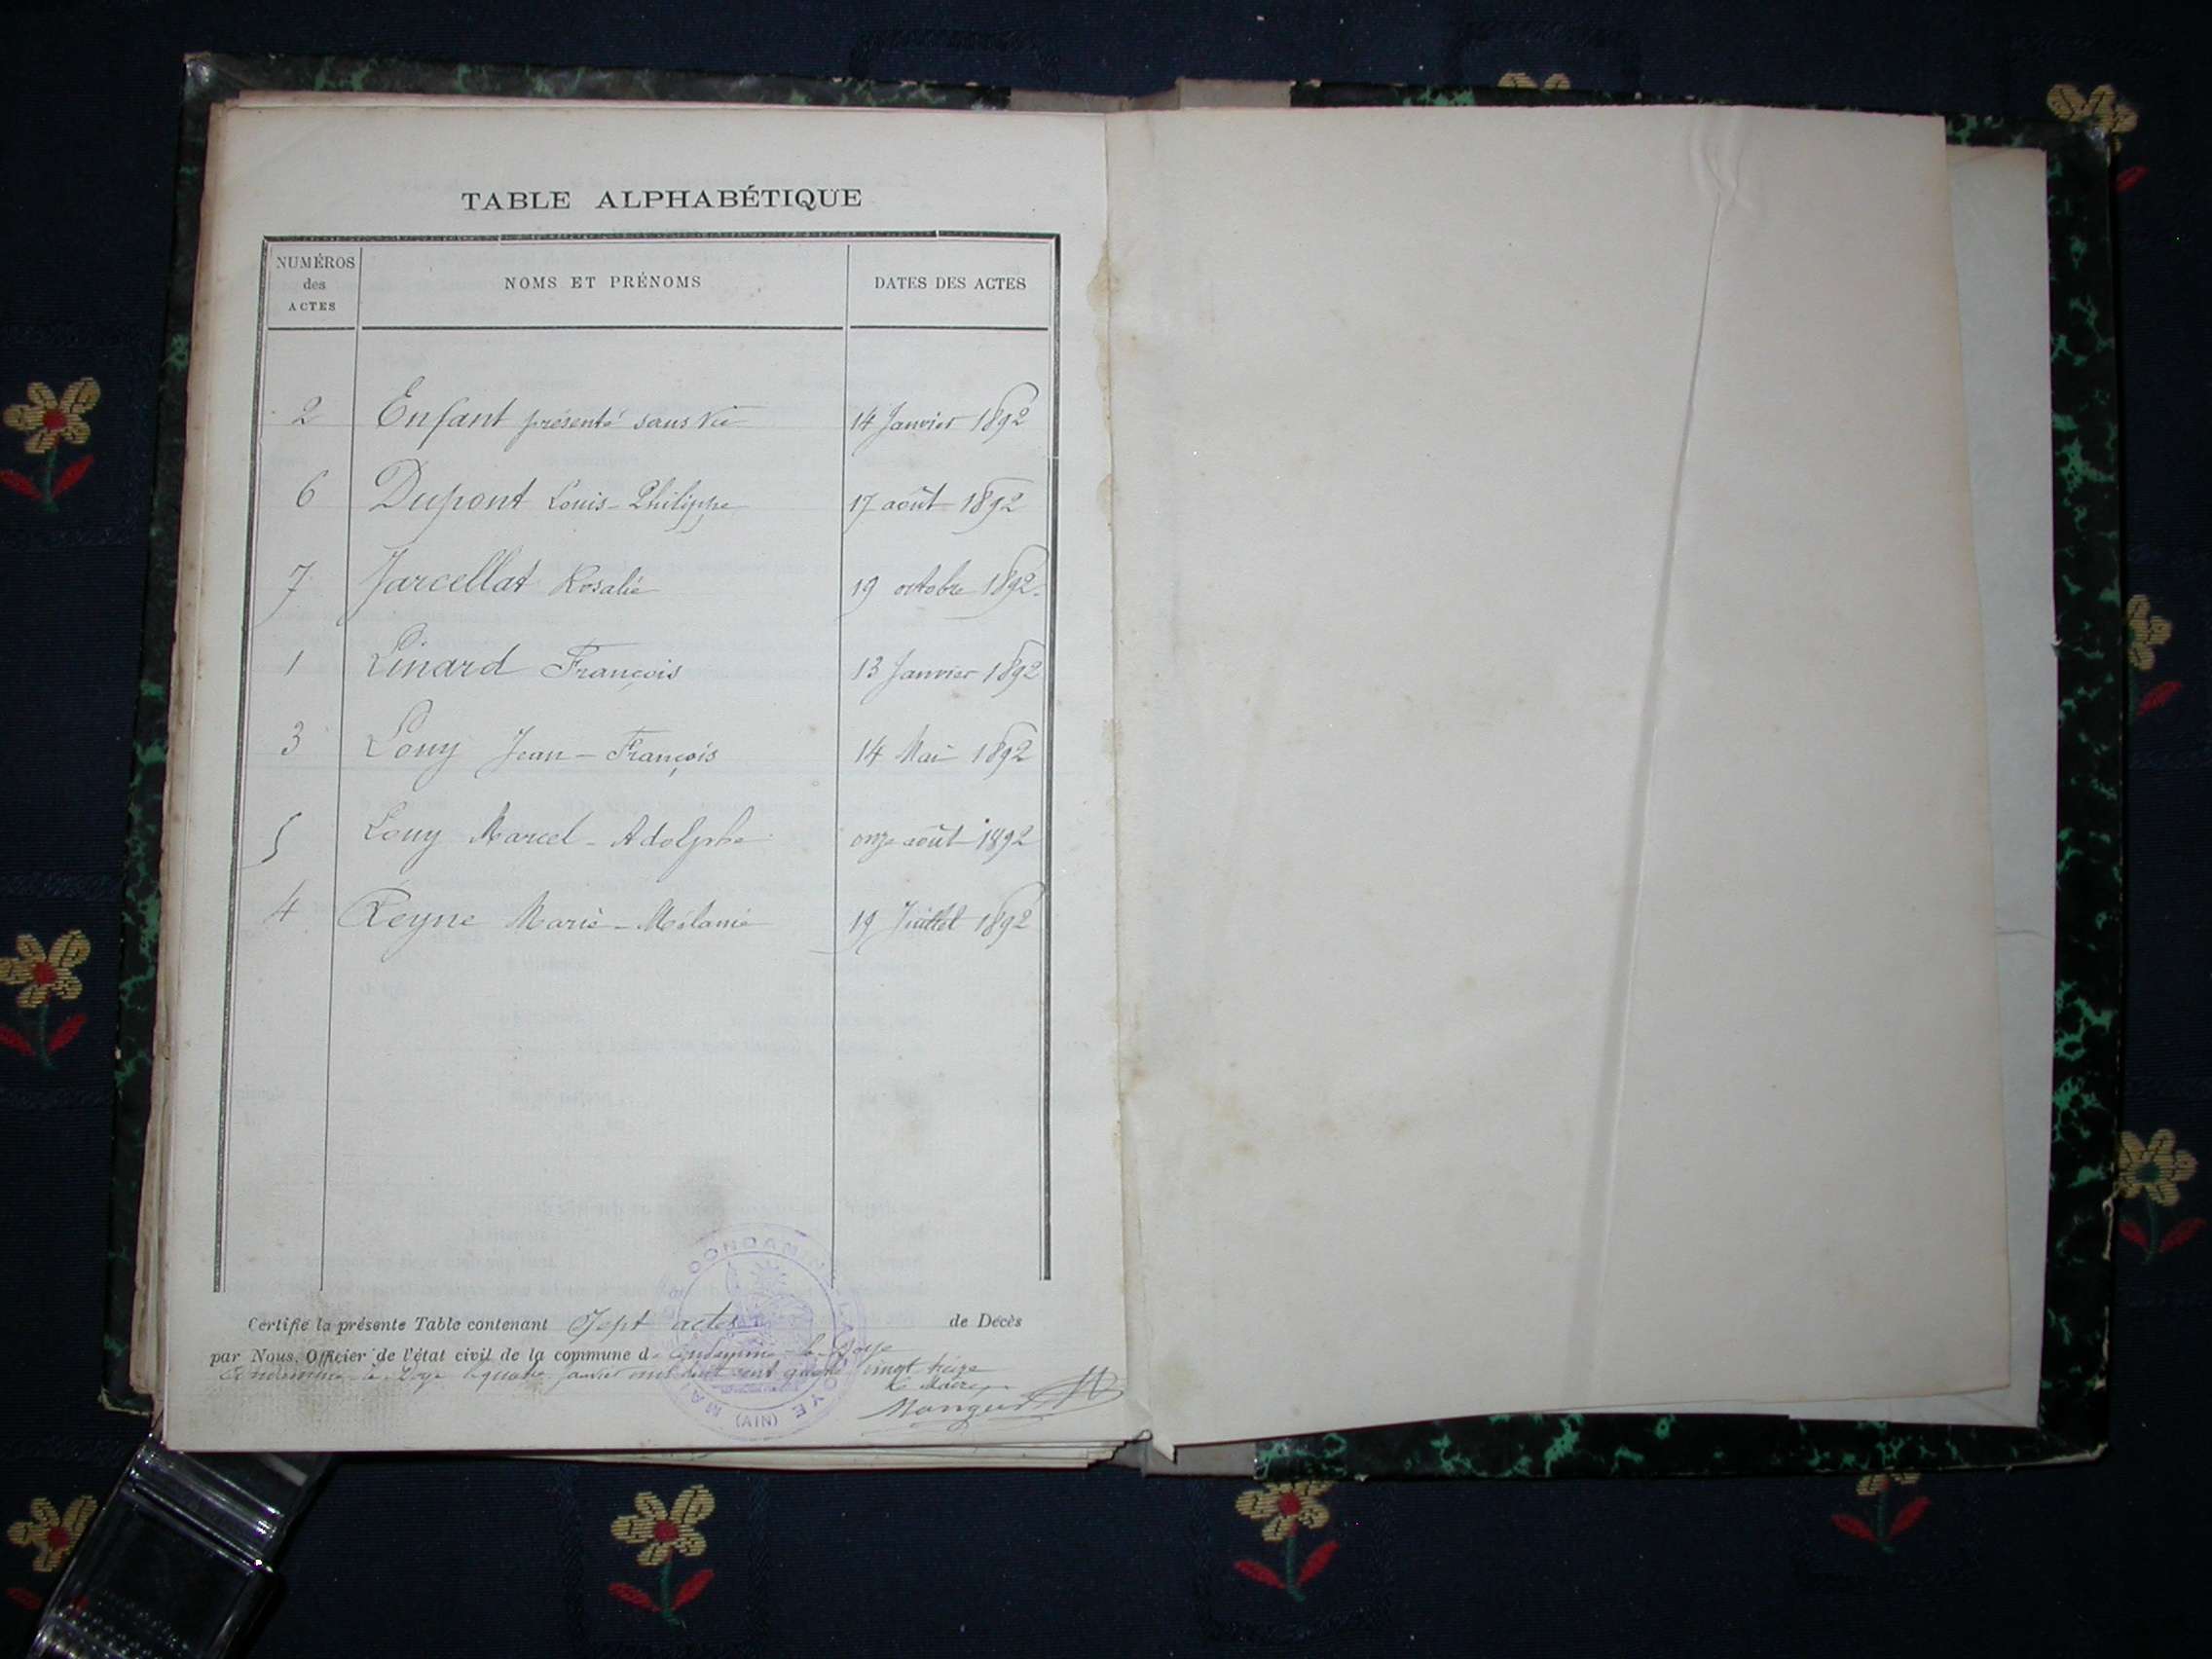 TABLE ALPHABÉTIQUE
NUMÉROS des ACTES NOMS ET PRÉNOMS DATES DES ACTES
2 Enfant présenté sans Vie 14 Janvier 1892
6 Dupont Louis-Philippe 17 août 1892
7 Jarcellat Rosalie 19 octobre 1892
1 Linard François 13 Janvier 1892
3 Louy Jean-François 14 Mai 1892
5 Louy Marcel-Adolphe onze août 1892
4 Reyne Marie-Mélanie 19 Juillet 1892
Certifié la présente Table contenant Sept actes de Décès
par Nous, Officier de l'état civil de la commune de Condamine-la-Doye
Condamine la Doye le quatre janvier mil huit cent quatre vingt treize
Le Maire
(AIN)